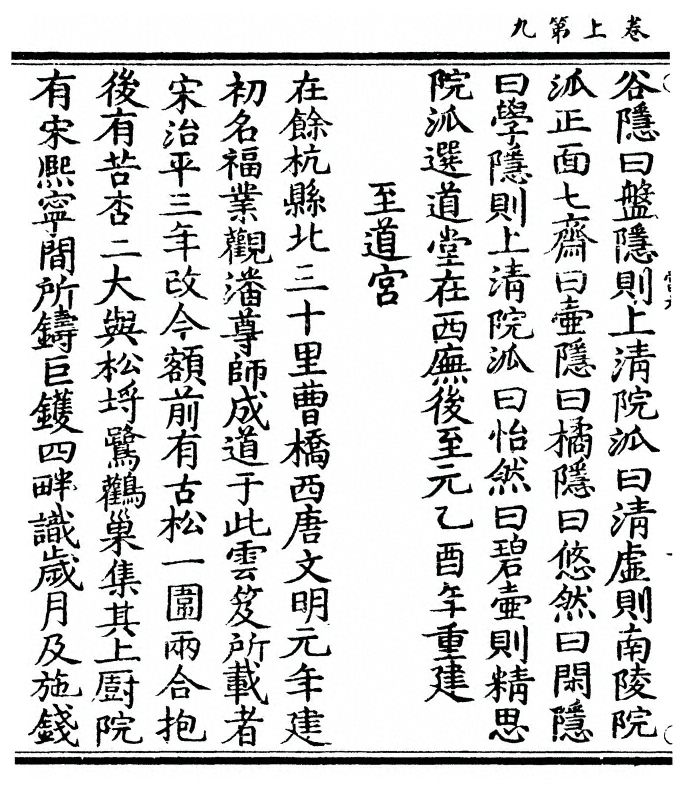 卷上第九
谷隱曰盤隱則上清院派曰清虛則南陵院
派正面七齋曰壷隱曰橘隱曰悠然曰閑隱
曰學隱則上清院派曰怡然曰碧壷則精思
院派選道堂在西廡後至元乙酉年重建
至道宮
在餘杭縣北三十里曹橋西唐文明元年建
初名福業觀潘尊師成道于此雲笈所載者
宋治平三年改今額前有古松一園兩合抱
後有苦杏二大與松埒鷺鸛巢集其上厨院
有宋熙寧間所鑄巨鑊四畔識歲月及施錢